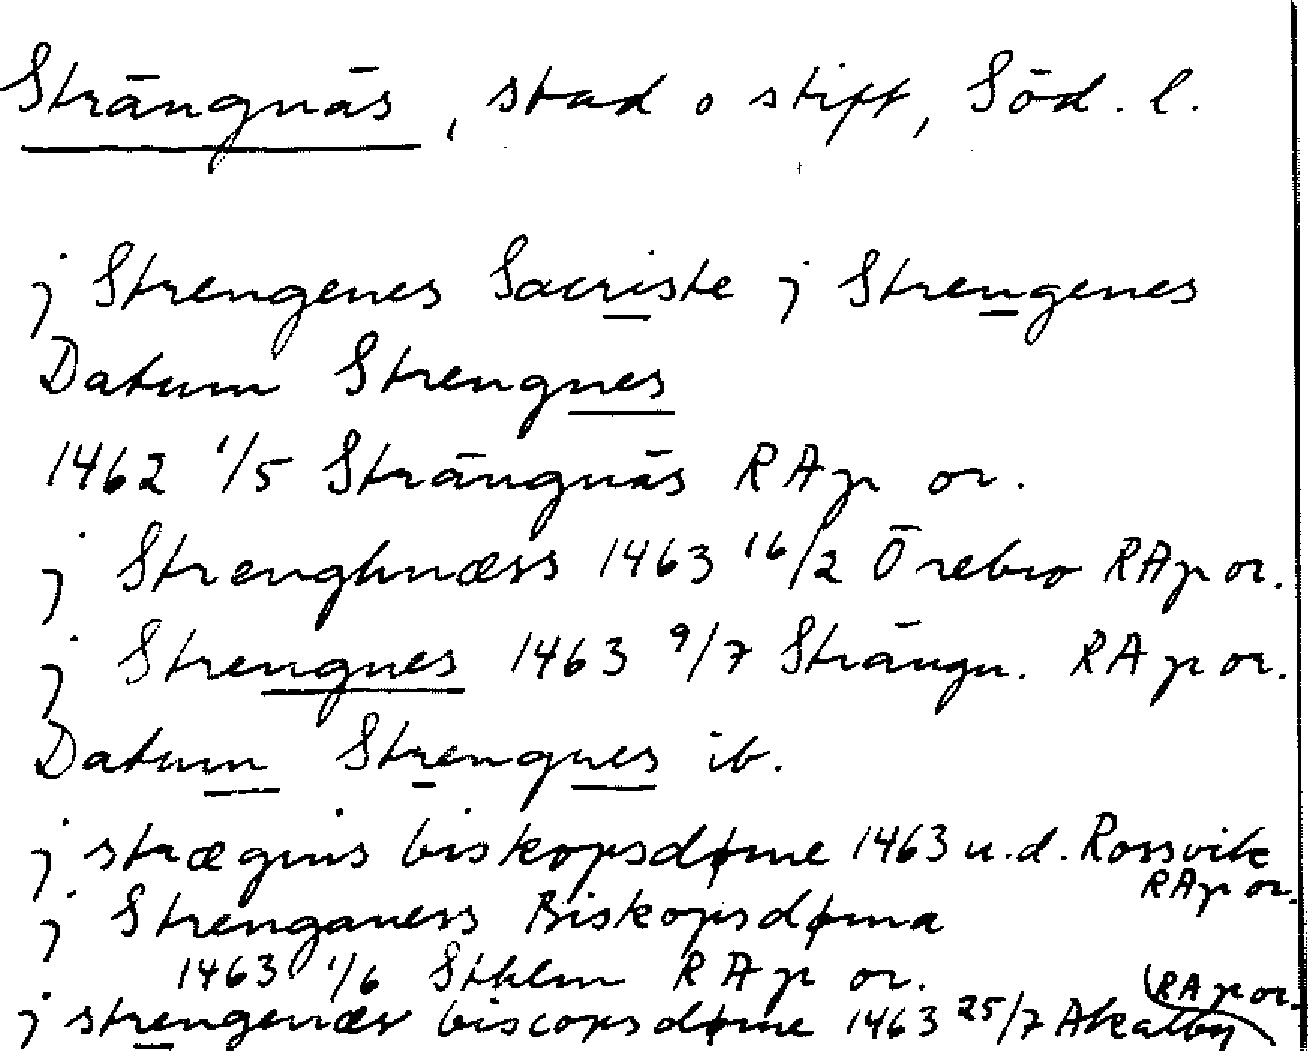 Strängnäs, stad o stift, Söd. l.
j Strengenes Sacriste j Strengenes
Datum Strengnes
1462 1/5 Strängnäs RAp or.
j Strenghnæss 1463 16/2 Örebro RAp or.
j Strengnes 1463 9/7 Strängn. RAp or.
Datum Strengnes ib.
j strægnis biskopsdøme 1463 u.d. Rossvik
RAp or.
j Strenganess Biskopsdøma
1463 1/6 Sthlm RAp or.
j strengenæs biscopsdøme 1463 25/7 Akalby
RAp or.